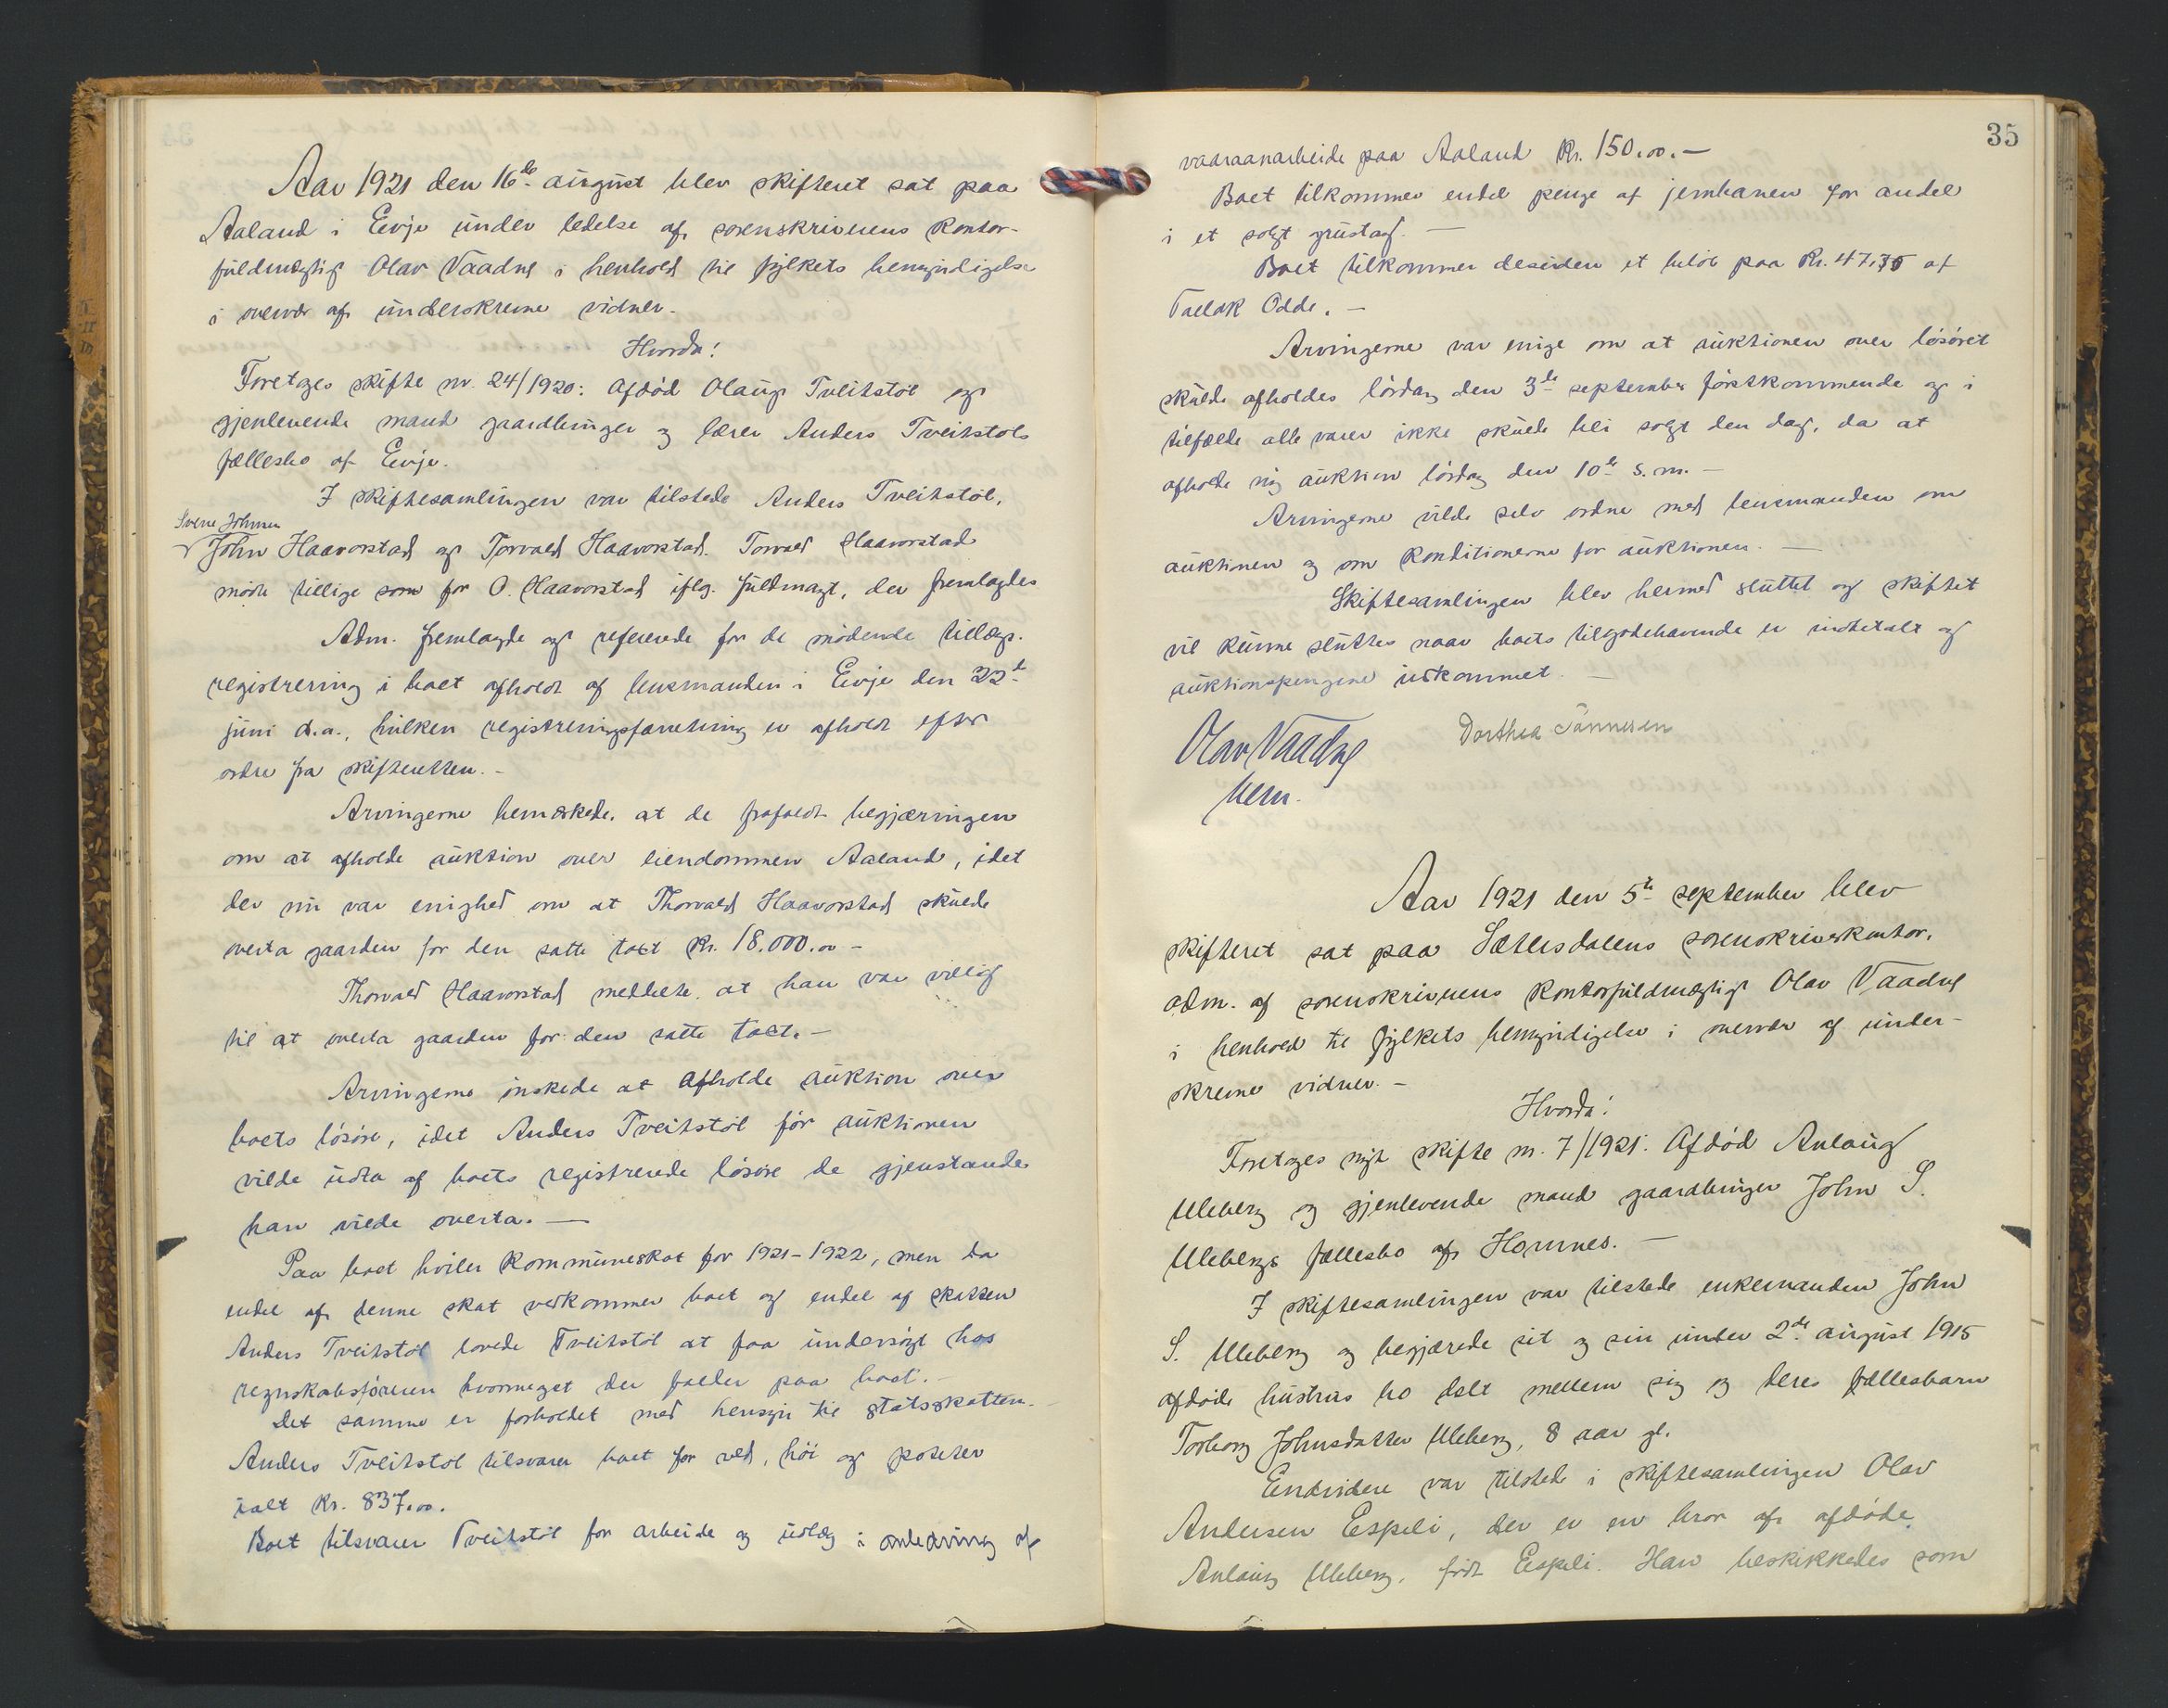 Aar 1921 den 16de august blev skifteret sat paa
Aaland i Evje under ledelse af sorenskriverens kontor-
fuldmægtig Olav Vaadne i henhold til fylkets bemyndigelse
i overvær af underskrevne vidner.
Hvorda!
Foretoges skifte nr. 24/1920: Afdöd Olaug Tveitstöl og
gjenlevende mand gaardbruger og lærer Anders Tveitstöls
fællesbo af Evje.
I skiftesamlingen var tilstede Anders Tveitstöl,
Johnsen
John Haavorstad og Torvald Haavorstad. Torvald Haavorstad
mödte tillige som for O. Haavorstad iflg. fuldmagt, der fremlagdes
Adm. fremlagde og refererede for de mödende tillægs-
registrering i boet afholdt af lensmanden i Evje den 22de
juni d.a., hvilken registreringsforretning er afholdt efter
ordre fra skifteretten. -
Arvingerne bemerkede, at de frafaldt begjæringen
om at afholde auktion over eiendommen Aaland, idet
der nu var enighed om at Thorvald Haavorstad skulde
overta gaarden for den satte taxt Kr. 18.000.00 -
Thorvald Haavorstad meddelte, at han var villig
til at overta gaarden for den satte taxt. -
Arvingerne önskede at afholde auktion over
boets lösöre, idet Anders Tveitstöl för auktionen
vilde udta af boets registrerede lösöre de gjenstande
han vilde overta. -
Paa boet hviler kommuneskat for 1921-1922, men da
endel af denne skat vedkommer boet og endel af skatten
Anders Tveitstöl lovede Tveitstöl at faa undersögt hos
regnskabsföreren hvormeget der falder paa boet. -
Det samme er forholdet med hensyn til statsskatten. -
Anders Tveitstöl tilsvarer boet for ved, höi og poteter
ialt Kr. 837.00.
Boet tilsvarer Tveitstöl for arbeide og udlæg i anledning af
35
vaaraanarbeide paa Aaland Kr. 150.00. -
Boet tilkommer endel penge af jernbanen for andel
i et solgt grustag. -
Boet tilkommer desuden et belöb paa Kr. 47,35 af
Taelak Odde. -
Arvingerne var enige om at auktionen over lösöret
skulde afholdes lördag den 3de september förstkommende og i
tilfælde alle varer ikke skulde bli solgt den dag, da at
afholde ny auktion lördag den 10de s.m. -
Arvingerne vilde selv ordne med lensmanden om
auktionen og om konditionerne for auktionen. -
Skiftesamlingen blev hermed sluttet og skiftet
vil kunne sluttes naar boets tilgodehavende er indbetalt og
auktionspengene indkommet. -
Olav Vaadne Dorthea Tönnesen
bem.
Aar 1921 den 5te september blev
skifteret sat paa Sætersdalens sorenskriverkontor,
adm. af sorenskriverens kontorfuldmægtig Olav Vaadne
i henhold til fylkets bemyndigelse i overvær af under-
skrevne vidner. -
Hvorda!
Foretoges nyt skifte nr. 7/1921: Afdöd Anlaug
Uleberg og gjenlevende mand gaardbruger John S.
Ulebergs fællesbo af Hornnes. -
I skiftesamlingen var tilstede enkemanden John
S. Uleberg og begjærede sit og sin under 2de august 1915
afdöde hustrus bo delt mellem sig og deres fællesbarn
Torborg Johnsdatter Uleberg, 8 aar gl.
Endvidere var tilstede i skiftesamlingen Olav
Andersen Espeli, der er en bror af afdöde
Anlaug Uleberg, född Espeli. Han beskikkedes som